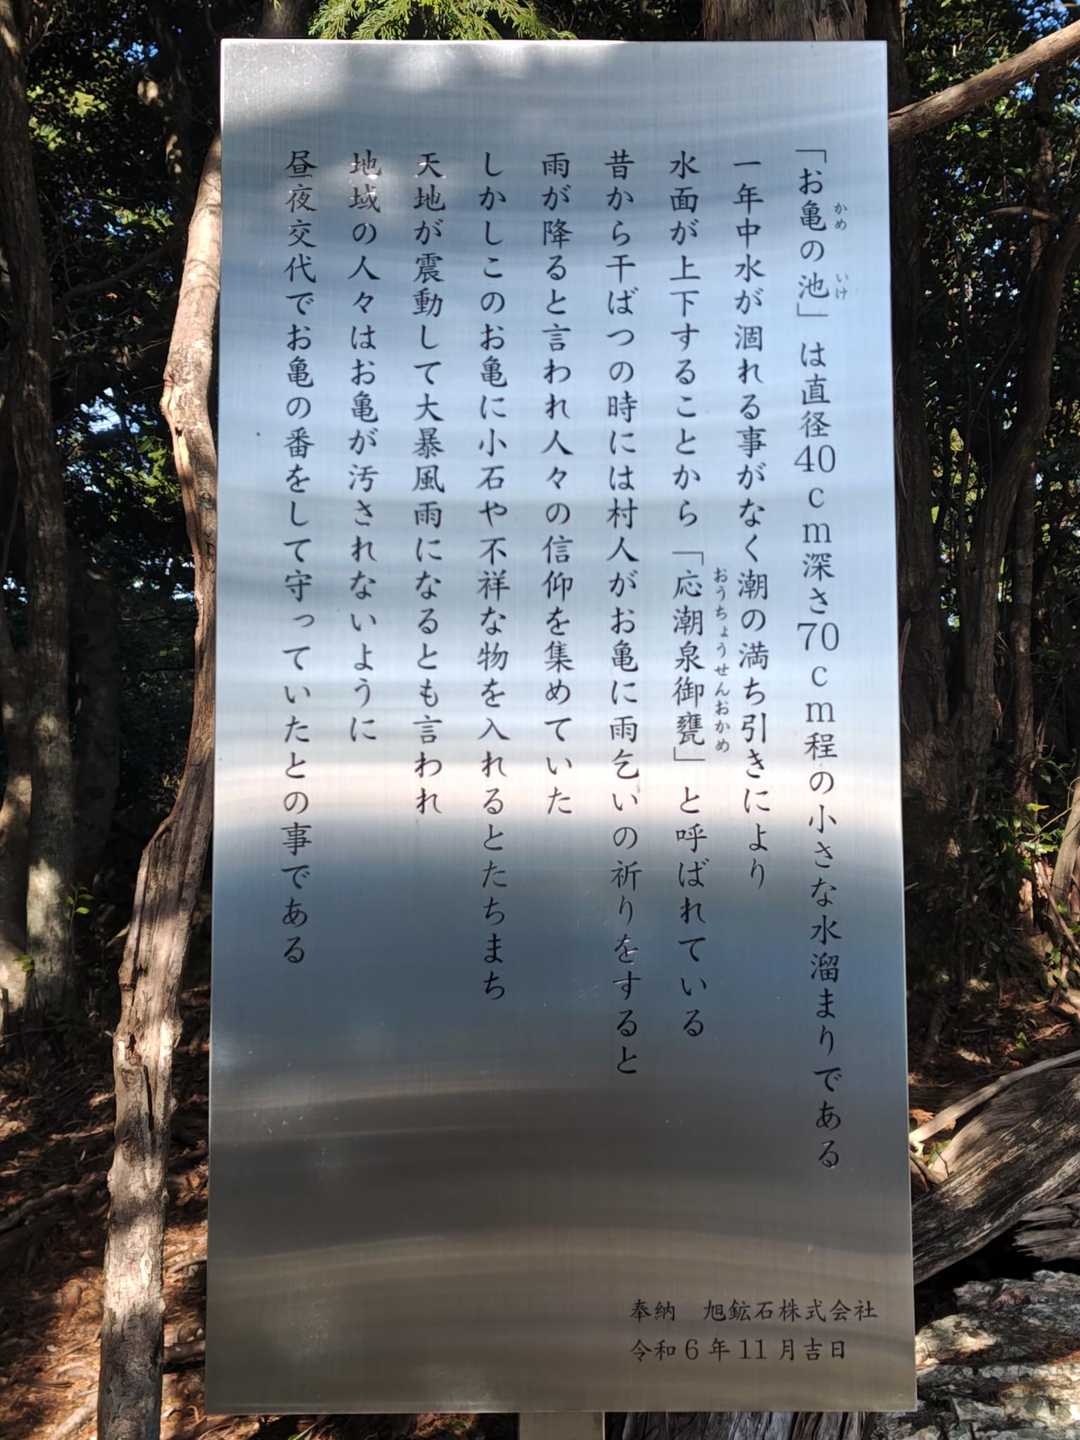 「お亀の池」は直径40cm深さ70cm程の小さな水溜まりである
かめ
いけ
一年中水が涸れる事がなく潮の満ち引きにより
水面が上下することから「応潮泉御甕」と呼ばれている
おうちょうせんおかめ
昔から干ばつの時には村人がお亀に雨乞いの祈りをすると
雨が降ると言われ人々の信仰を集めていた
しかしこのお亀に小石や不祥な物を入れるとたちまち
天地が震動して大暴風雨になるとも言われ
地域の人々はお亀が汚されないように
昼夜交代でお亀の番をして守っていたとの事である
奉納　旭鉱石株式会社
令和6年11月吉日